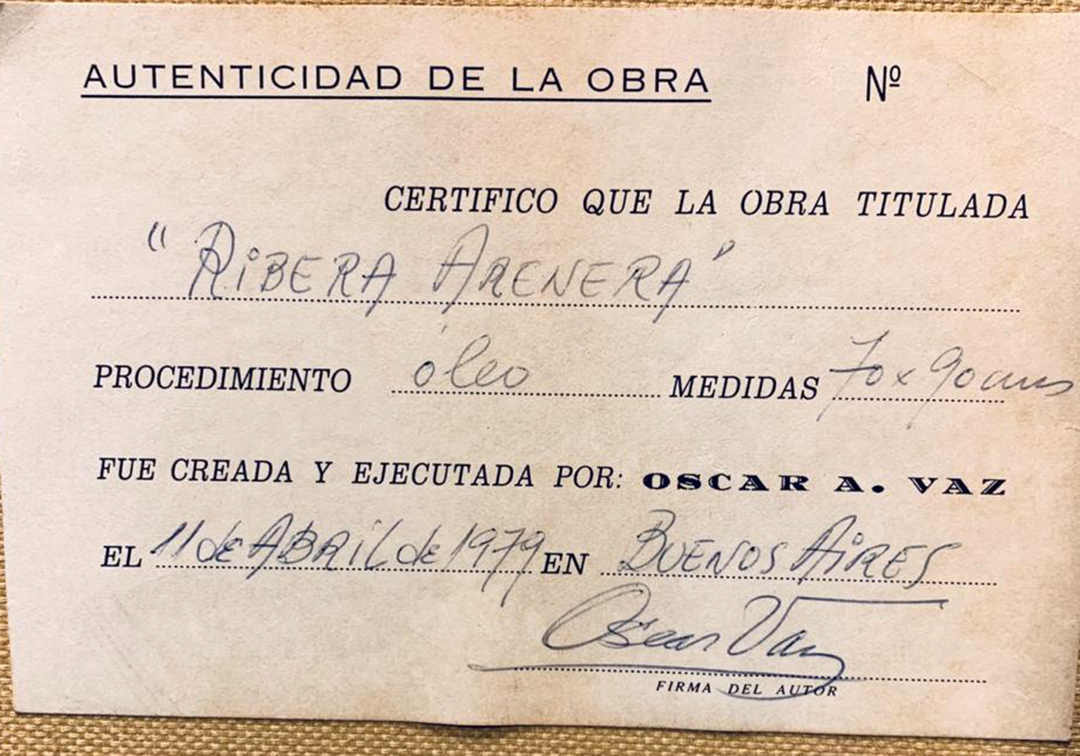 AUTENTICIDAD DE LA OBRA Nº
CERTIFICO QUE LA OBRA TITULADA
"RiBERA ARENERA"
PROCEDIMIENTO óleo MEDIDAS 70x90cms
FUE CREADA Y EJECUTADA POR: OSCAR A. VAZ
EL 11 de ABRiL de 1979 EN BUENOS AiRES
Oscar Vaz
FIRMA DEL AUTOR